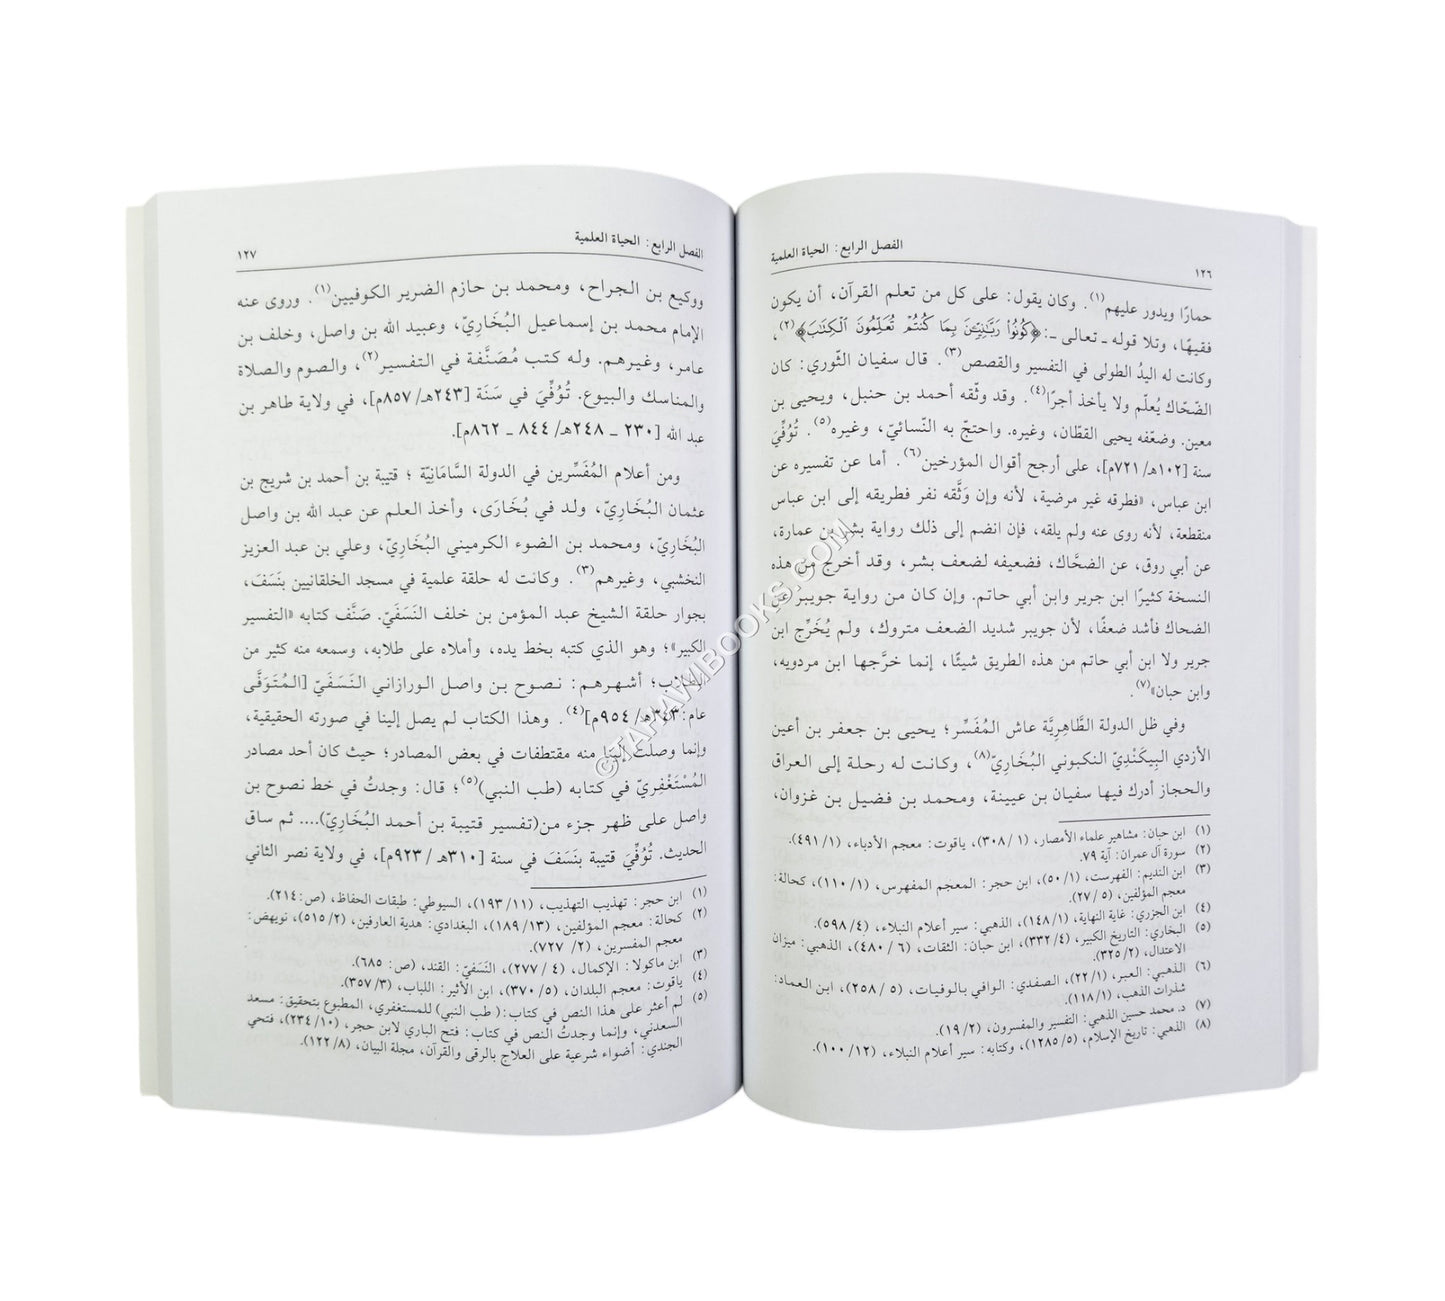 ١٢٦
الفصل الرابع: الحياة العلمية
حمارًا ويدور عليهم(١). وكان يقول: على كل من تعلم القرآن، أن يكون
فقيهًا، وتلا قوله ـ تعالى ـ: ﴿كُونُوا۟ رَبَّٰنِيِّـۧنَ بِمَا كُنتُمۡ تُعَلِّمُونَ ٱلۡكِتَٰبَ﴾(٢)،
وكانت له اليدُ الطولى في التفسير والقصص(٣). قال سفيان الثَّوري: كان
الضّحّاك يُعلّم ولا يأخذ أجرًا(٤). وقد وثّقه أحمد بن حنبل، ويحيى بن
معين. وضعّفه يحيى القطّان، وغيره. واحتجّ به النّسائيّ، وغيره(٥). تُوُفِّيَ
سنة [١٠٢هـ/٧٢١م]، على أرجح أقوال المؤرخين(٦). أما عن تفسيره عن
ابن عباس، «فطرقه غير مرضية، لأنه وإن وَثَّقه نفر فطريقه إلى ابن عباس
منقطعة، لأنه روى عنه ولم يلقه، فإن انضم إلى ذلك رواية بشر بن عمارة،
عن أبي روق، عن الضحَّاك، فضعيفه لضعف بشر، وقد أخرج من هذه
النسخة كثيرًا ابن جرير وابن أبي حاتم. وإن كان من رواية جويبر عن
الضحاك فأشد ضعفًا، لأن جويبر شديد الضعف متروك، ولم يُخَرِّج ابن
جرير ولا ابن أبي حاتم من هذه الطريق شيئًا، إنما خرَّجها ابن مردويه،
وابن حبان»(٧).
وفي ظل الدولة الطَّاهِرِيَّة عاش المُفَسِّر؛ يحيى بن جعفر بن أعين
الأزدي البِيكَنْدِيّ النكبوني البُخَارِيّ(٨)، وكانت له رحلة إلى العراق
والحجاز أدرك فيها سفيان بن عيينة، ومحمد بن فضيل بن غزوان،
(١) ابن حبان: مشاهير علماء الأمصار، (١/ ٣٠٨)، ياقوت: معجم الأدباء، (٤٩١/١).
(٢) سورة آل عمران: آية ٧٩.
(٣) ابن النديم: الفهرست، (٥٠/١)، ابن حجر: المعجم المفهرس، (١١٠/١)، كحالة:
معجم المؤلفين، (٢٧/٥).
(٤) ابن الجزري: غاية النهاية، (١٤٨/١)، الذهبي: سير أعلام النبلاء، (٥٩٨/٤).
(٥) البخاري: التاريخ الكبير، (٣٣٢/٤)، ابن حبان: الثقات، (٦/ ٤٨٠)، الذهبي: ميزان
الاعتدال، (٣٢٥/٢).
(٦) الذهبي: العبر، (٢٢/١)، الصفدي: الوافي بالوفيات، (٥/ ٢٥٨)، ابن العماد:
شذرات الذهب، (١١٨/١).
(٧) د. محمد حسين الذهبي: التفسير والمفسرون، (١٩/٢).
(٨) الذهبي: تاريخ الإسلام، (١٢٨٥/٥)، وكتابه: سير أعلام النبلاء، (١٠٠/١٢).
الفصل الرابع: الحياة العلمية
١٢٧
ووكيع بن الجراح، ومحمد بن حازم الضرير الكوفيين(١). وروى عنه
الإمام محمد بن إسماعيل البُخَارِيّ، وعبيد الله بن واصل، وخلف بن
عامر، وغيرهم. وله كتب مُصَنَّفة في التفسير(٢)، والصوم والصلاة
والمناسك والبيوع. تُوُفِّيَ في سَنَة [٢٤٣هـ/٨٥٧م]، في ولاية طاهر بن
عبد الله [٢٣٠ ـ ٢٤٨هـ/ ٨٤٤ ـ ٨٦٢م].
ومن أعلام المُفَسِّرين في الدولة السَّامَانِيّة ؛ قتيبة بن أحمد بن شريح بن
عثمان البُخَارِيّ، ولد في بُخَارَى، وأخذ العلم عن عبد الله بن واصل
البُخَارِيّ، ومحمد بن الضوء الكرميني البُخَارِيّ، وعلي بن عبد العزيز
النخشبي، وغيرهم(٣). وكانت له حلقة علمية في مسجد الخلقانيين بنَسَفَ،
بجوار حلقة الشيخ عبد المؤمن بن خلف النَسَفَيّ. صَنَّف كتابه «التفسير
الكبير»؛ وهو الذي كتبه بخط يده، وأملاه على طلابه، وسمعه منه كثير من
الطلاب؛ أشهرهم: نصوح بن واصل الورازاني النَسَفَيّ [المُتَوَفَّى
عام: ٣٤٣هـ/٩٥٤م](٤). وهذا الكتاب لم يصل إلينا في صورته الحقيقية،
وإنما وصلت إلينا منه مقتطفات في بعض المصادر؛ حيث كان أحد مصادر
المُسْتَغْفِريّ في كتابه (طب النبي)(٥)؛ قال: وجدتُ في خط نصوح بن
واصل على ظهر جزء من(تفسير قتيبة بن أحمد البُخَارِيّ).... ثم ساق
الحديث. تُوُفِّيَ قتيبة بنَسَفَ في سنة [٣١٠هـ/٩٢٣م]، في ولاية نصر الثاني
(١) ابن حجر: تهذيب التهذيب، (١٩٣/١١)، السيوطي: طبقات الحفاظ، (ص:٢١٤).
(٢) كحالة: معجم المؤلفين، (١٨٩/١٣)، البغدادي: هدية العارفين، (٥١٥/٢)، نويهض:
معجم المفسرين، (٢/ ٧٢٧).
(٣) ابن ماكولا: الإكمال، (٢٧٧/٤)، النَسَفيّ: القند، (ص: ٦٨٥).
(٤) ياقوت: معجم البلدان، (٣٧٠/٥)، ابن الأثير: اللباب، (٣٥٧/٣).
(٥) لم أعثر على هذا النص في كتاب: ( طب النبي) للمستغفري، المطبوع بتحقيق: مسعد
السعدني، وإنما وجدتُ النص في كتاب: فتح الباري لابن حجر، (٢٣٤/١٠)، فتحي
الجندي: أضواء شرعية على العلاج بالرقى والقرآن، مجلة البيان، (١٢٢/٨).
©TAHAWIBOOKS.COM